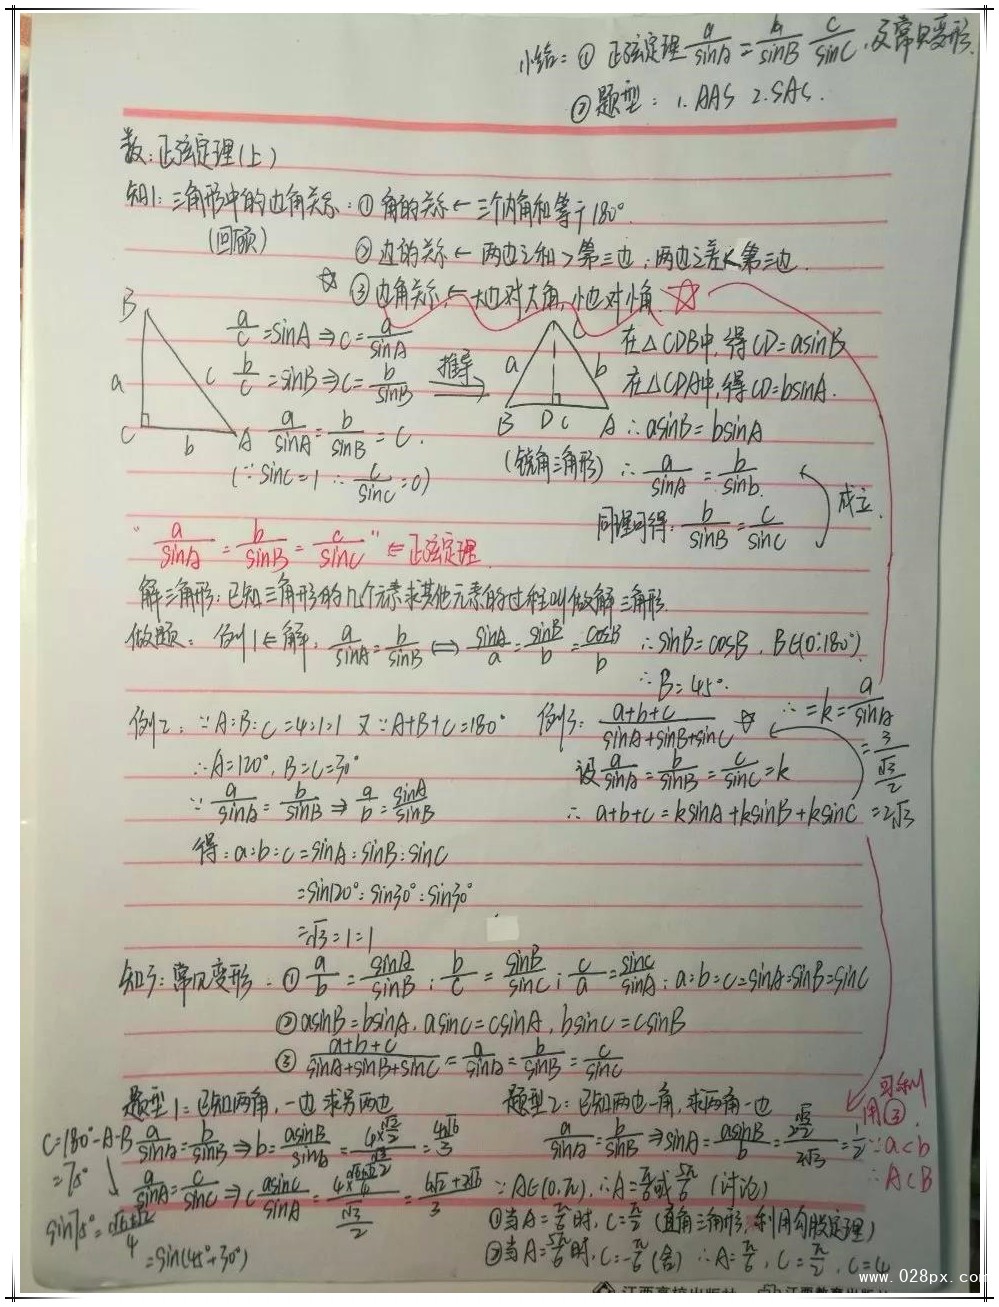 小结: ① 正弦定理 a/sinA = b/sinB c/sinC, 及常见变形.
② 题型: 1. AAS 2. SAS.
数: 正弦定理(上)
知1: 三角形中的边角关系: ① 角的关系 ← 三个内角和等于180°.
(回顾) ② 边的关系 ← 两边之和>第三边; 两边之差<第三边.
☆ ③ 边角关系 ← 大边对大角, 小边对小角 ☆
B
a/c = sinA ⇒ c = a/sinA
b/c = sinB ⇒ c = b/sinB
推导
a c
C b A
a/sinA = b/sinB = c.
(∵ sinC = 1 ∴ c/sinC = 0)
C
a b
B D c A
(锐角三角形)
在△CDB中, 得CD = asinB
在△CDA中, 得CD = bsinA.
∴ asinB = bsinA
∴ a/sinA = b/sinb.
同理可得: b/sinB = c/sinC
成立.
"a/sinA = b/sinB = c/sinC" ⇐ 正弦定理.
解三角形: 已知三角形的几个元素求其他元素的过程叫做解三角形.
做题: 例1 ⇐ 解: a/sinA = b/sinB ⇔ sinA/a = sinB/b = cosB/b ∴ sinB = cosB, B∈(0°,180°)
∴ B = 45°.
例2: ∵ A:B:C = 4:1:1 又∵ A+B+C = 180°
∴ A = 120°, B = C = 30°
∵ a/sinA = b/sinB ⇒ a/b = sinA/sinB
得: a:b:c = sinA:sinB:sinC
= sin120°:sin30°:sin30°
= √3:1:1
例3: a+b+c/sinA+sinB+sinC ☆
设 a/sinA = b/sinB = c/sinC = k
∴ a+b+c = ksinA+ksinB+ksinC
∴ = k = a/sinA
= 3/(√3/2)
= 2√3
知3: 常见变形: ① a/b = sinA/sinB; b/c = sinB/sinC; c/a = sinC/sinA; a:b:c = sinA:sinB:sinC
② asinB = bsinA, asinC = csinA, bsinC = csinB
③ a+b+c/sinA+sinB+sinC = a/sinA = b/sinB = c/sinC
题型1: 已知两角, 一边 求另两边
C = 180°-A-B
= 75°
a/sinA = b/sinB ⇒ b = asinB/sinA = 4×√2/2 / √3/2 = 4√6/3
a/sinA = c/sinC ⇒ c asinC/sinA = 4×√6+√2/4 / √3/2 = 4√2+2√6/3
sin75° = √6+√2/4
= sin(45°+30°)
题型2: 已知两边一角, 求两角一边
a/sinA = b/sinB ⇒ sinA = asinB/b = 1/2
∵ A∈(0,π), ∴ A = π/6 或 5π/6 (讨论)
① 当A = π/6 时, C = π/2 (直角三角形, 利用勾股定理)
② 当A = 5π/6 时, C = -π/6 (舍) ∴ A = π/6, C = π/2, c = 4
可利
用③.
∵ a<b
∴ A<B
www.028px.com